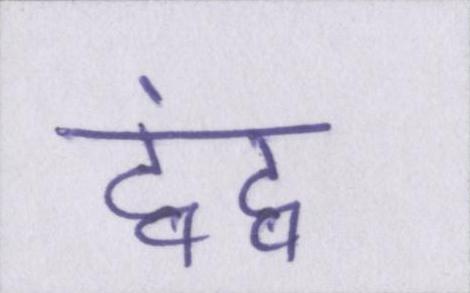 द्वंद्व